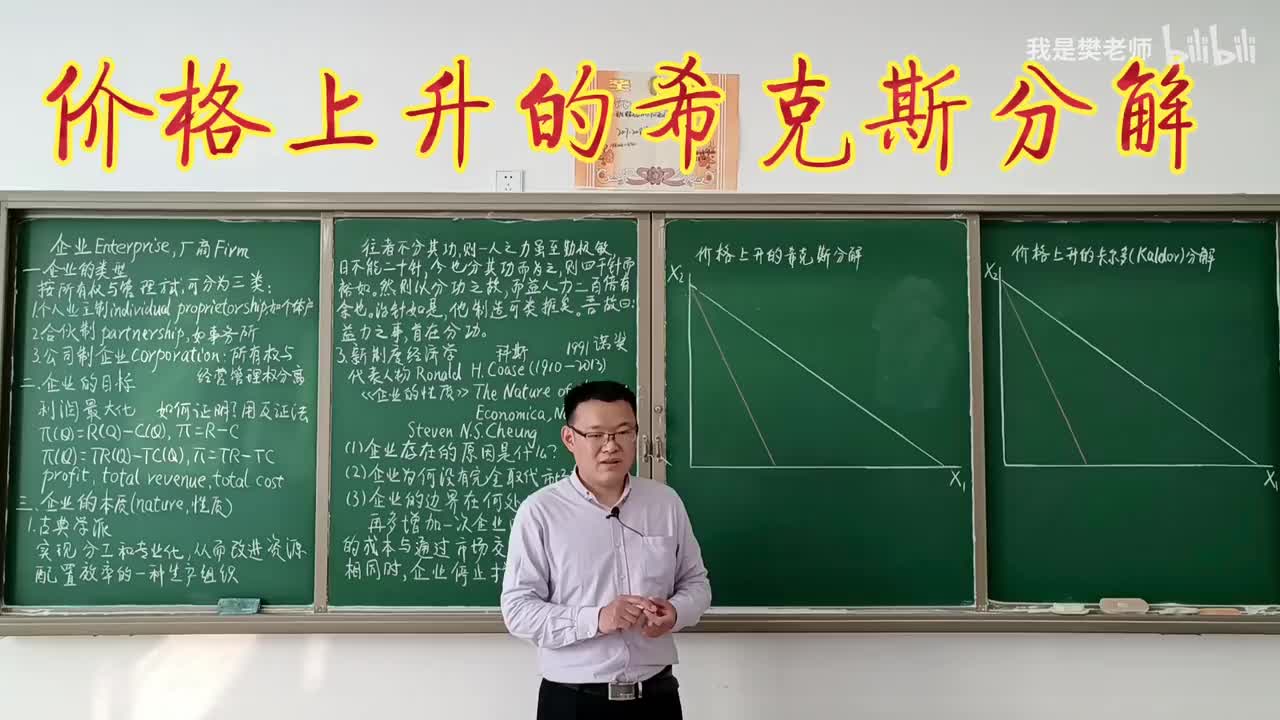 我是樊老师 bilibili
价格上升的希克斯分解
企业Enterprise,厂商Firm
一.企业的类型
按所有权与管理方式,可分为三类:
1.个人业主制individual proprietorship如个体户
2.合伙制 partnership,如事务所
3.公司制企业corporation:所有权与
经营管理权分离
二.企业的目标
利润最大化 如何证明?用反证法
π(Q)=R(Q)-C(Q),π=R-C
π(Q)=TR(Q)-TC(Q),π=TR-TC
profit, total revenue,total cost
三.企业的本质(nature,性质)
1.古典学派
实现分工和专业化,从而改进资源
配置效率的一种生产组织
往者不分其功,则一人之力虽至勤极敏
日不能二十针,今也分其功而为之,则四千针而
裕如。然则以分功之故,而益人力二百倍有
余也。治针如是,他制造可类推矣。吾故曰:
益力之事,首在分功。
3.新制度经济学 科斯 1991诺奖
代表人物Ronald H.Coase(1910-2013)
《企业的性质》The Nature of
Economica,
Steven N.S.Cheung
(1)企业存在的原因是什么?
(2)企业为何没有完全取代市场
(3)企业的边界在何处
再多增加一次企业
的成本与通过市场交
相同时,企业停止扩
价格上升的希克斯分解
X₂
X₁
价格上升的卡尔多(Kaldor)分解
X₂
X₁